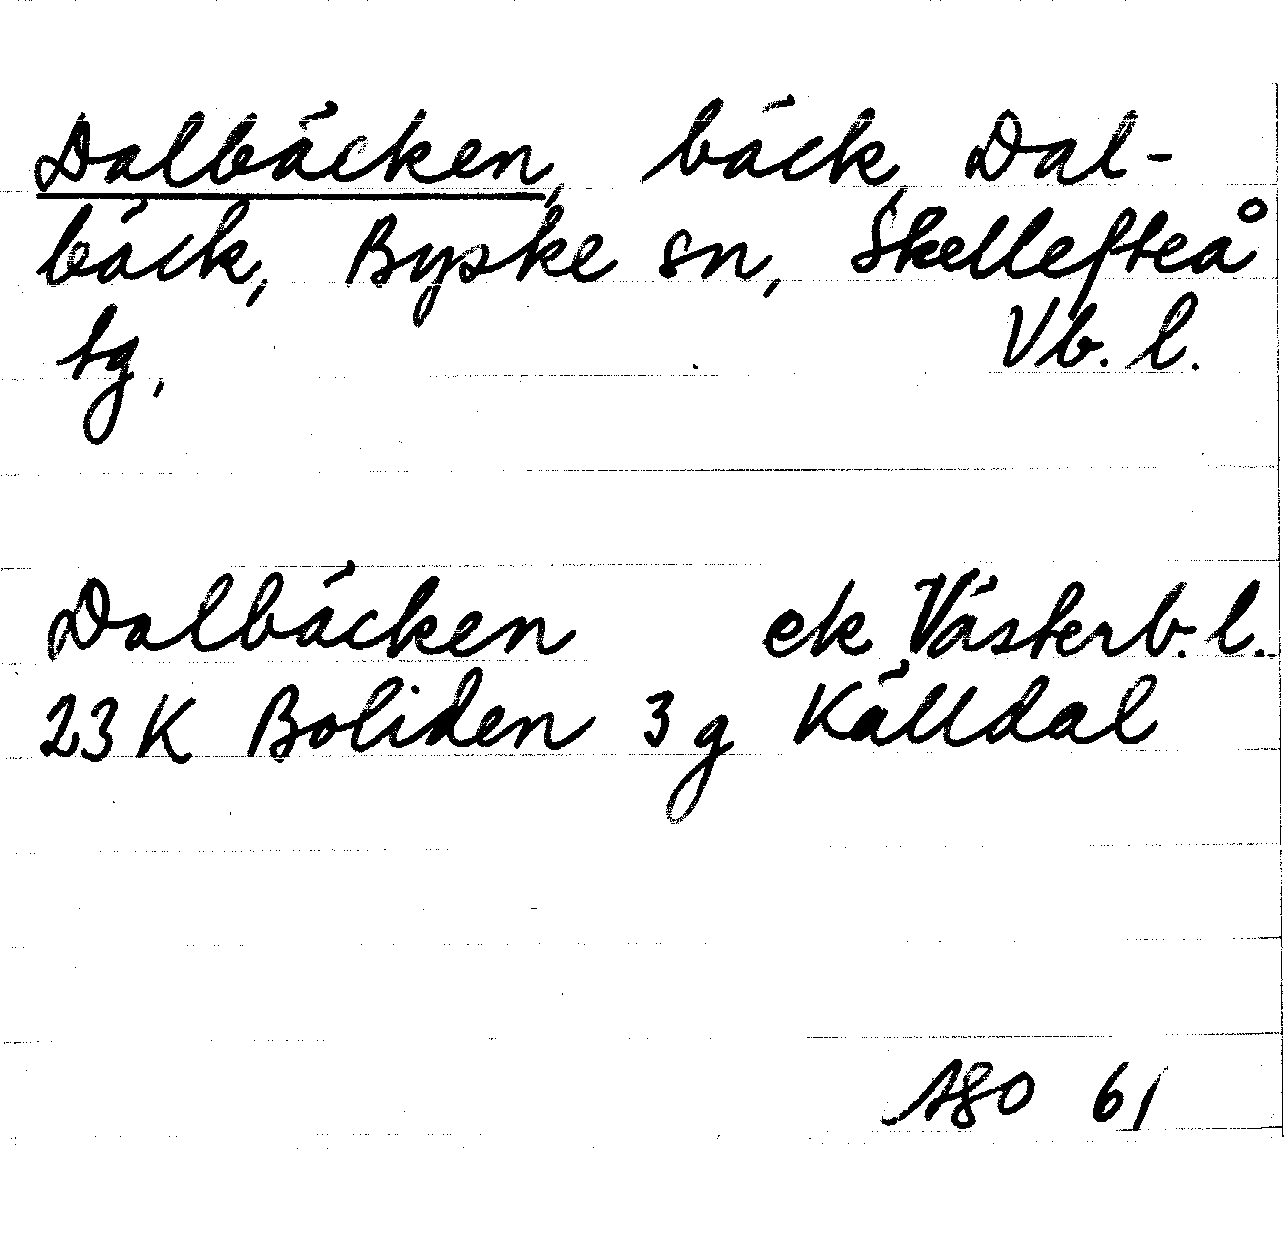 Dalbäcken, bäck, Dal-
bäck, Byske sn, Skellefteå
tg, Vb. l.
Dalbäcken ek Västerb. l.
23 K Boliden 3 g Källdal
61